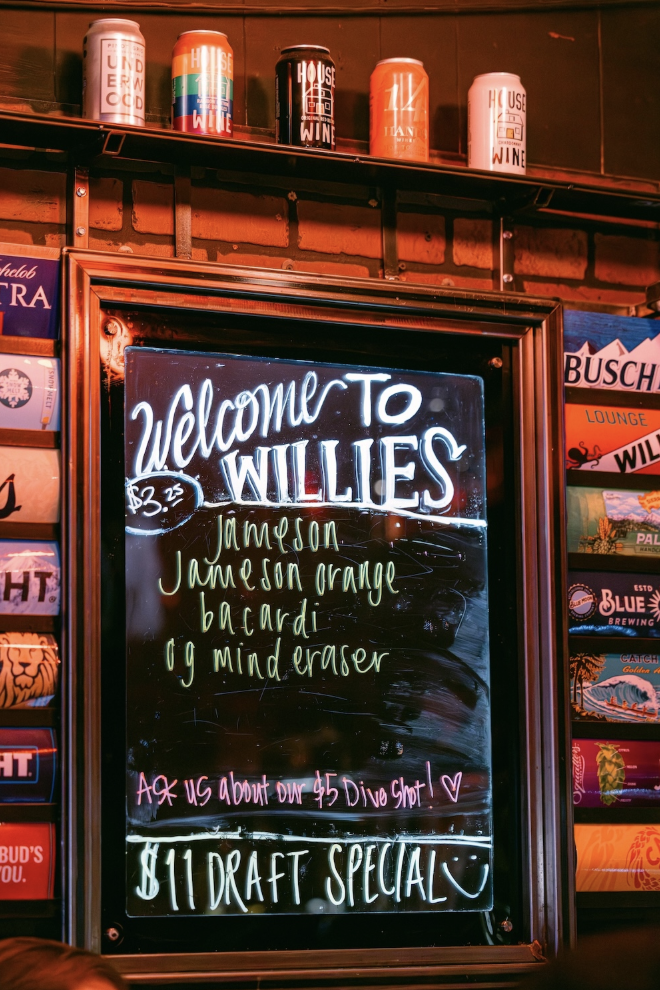 UND
ERW
OOD
HOUSE
WINE
HOUSE
WINE
14
HANDS
HOUSE
WINE
TRA
BUSCH
LOUNGE
WIL
PAL
HT
ESTD
BLUE
BREWING
CATCH
Golden
HT.
BUD'S
YOU.
Welcome TO
WILLIES
$3.25
Jameson
Jameson orange
bacardi
og mind eraser
Ask us about our $5 Dive shot! ♡
$11 DRAFT SPECIAL